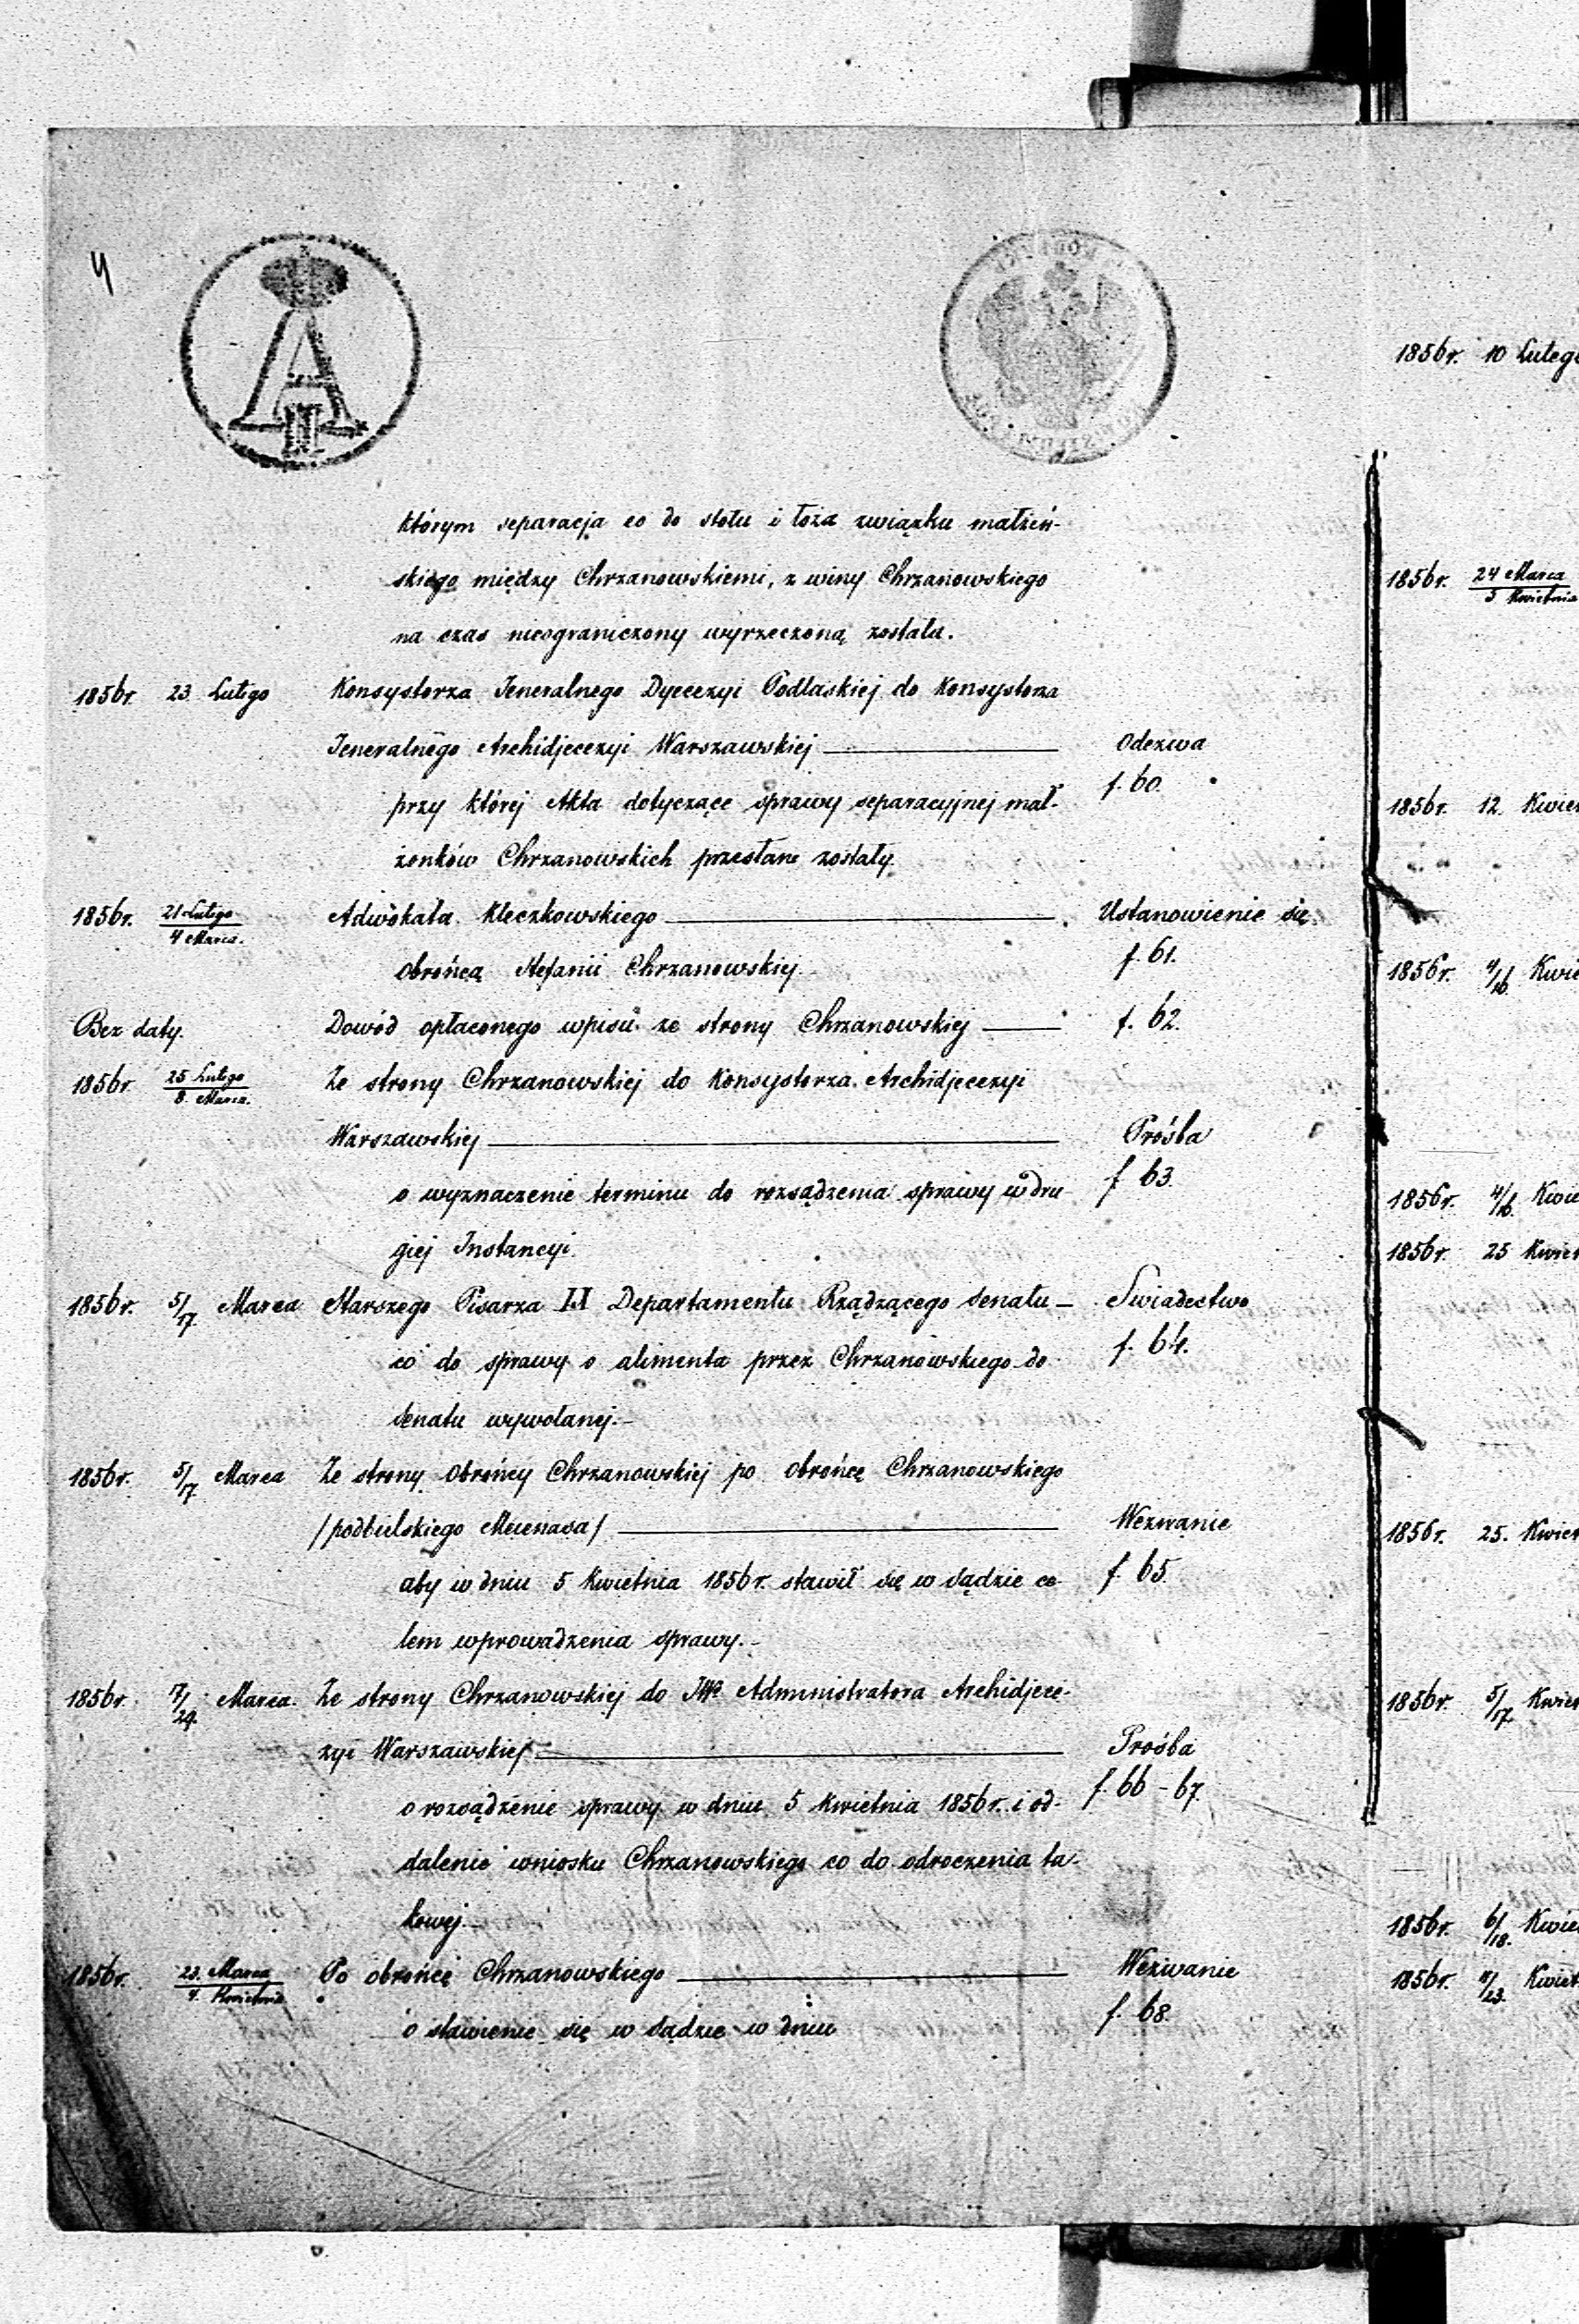 4
którym separacja co do stołu i łoża związku małżeń-
skiego między Chrzanowskiemi, z winy Chrzanowskiego
na czas nieograniczony wyrzeczoną została.
1856r. 23 Lutego Konsystorza Jeneralnego Dyecezyi Podlaskiej do Konsystorza
Jeneralnego Archidjecezyi Warszawskiej Odezwa
f. 60
przy której Akta dotyczące sprawy separacyjnej mał-
żonków Chrzanowskich przesłane zostały.
1856r. 21 Lutego / 4 Marca. Adwokata Kleczkowskiego Ustanowienie się
obrońcą Stefanii Chrzanowskiej. f. 61.
Bez daty. Dowód opłaconego wpisu ze strony Chrzanowskiej f. 62.
1856r. 25 Lutego / 8 Marca. Ze strony Chrzanowskiej do Konsystorza Archidjecezyi
Warszawskiej Prośba
o wyznaczenie terminu do rozsądzenia sprawy w dru f 63.
giej Instancyi.
1856r. 5/17 Marca Starszego Pisarza IX Departamentu Rządzącego Senatu – Swiadectwo
co do sprawy o alimenta przez Chrzanowskiego do f. 64.
Senatu wywołanej.–
1856r. 5/17 Marca Ze strony Obrońcy Chrzanowskiej po obrońcę Chrzanowskiego
/podbielskiego Mecenasa/ Wezwanie
aby w dniu 5 Kwietnia 1856r. stawił się w Sądzie ce- f. 65.
lem wprowadzenia sprawy.–
1856r. 17/29. Marca. Ze strony Chrzanowskiej do JWo Administratora Archidjece-
zyi Warszawskiej Prośba
f. 66 – 67.
o rozsądzenie sprawy w dniu 5 Kwietnia 1856r. i od-
dalenie wniosku Chrzanowskiego co do odroczenia ta-
kowej.–
1856r. 23. Marca / 4. Kwietnia Po obrońcę Chrzanowskiego Wezwanie
o stawienie się w Sądzie w dniu f. 68.
1856r. 10 Luteg
1856r. 24 Marca / 5 Kwietnia
1856r. 12. Kwie
1856r. 4/16. Kwie
1856r. 4/16. Kwie
1856r. 25 Kwie
1856r. 25. Kwie
1856r. 5/17. Kwie
1856r. 6/18. Kwie
1856r. 11/23. Kwie